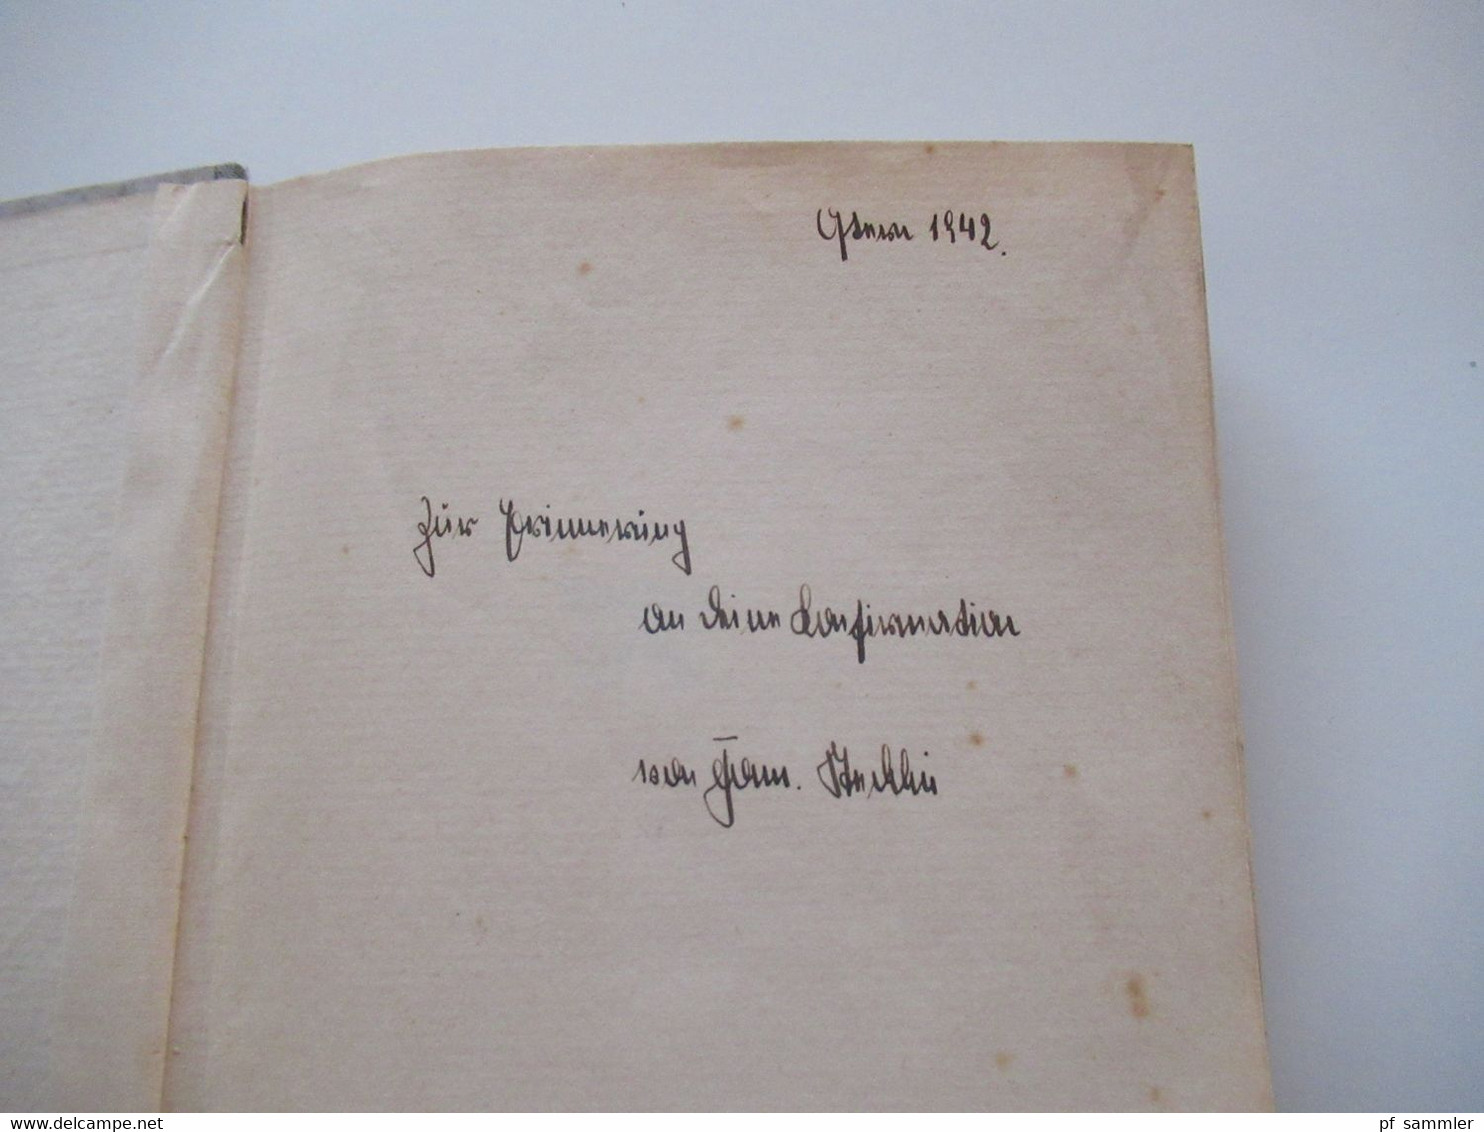 Ostern 1942.
Zur Erinnerung
an deine Konfirmation
von Fam.
www.delcampe.net
pf_sammler